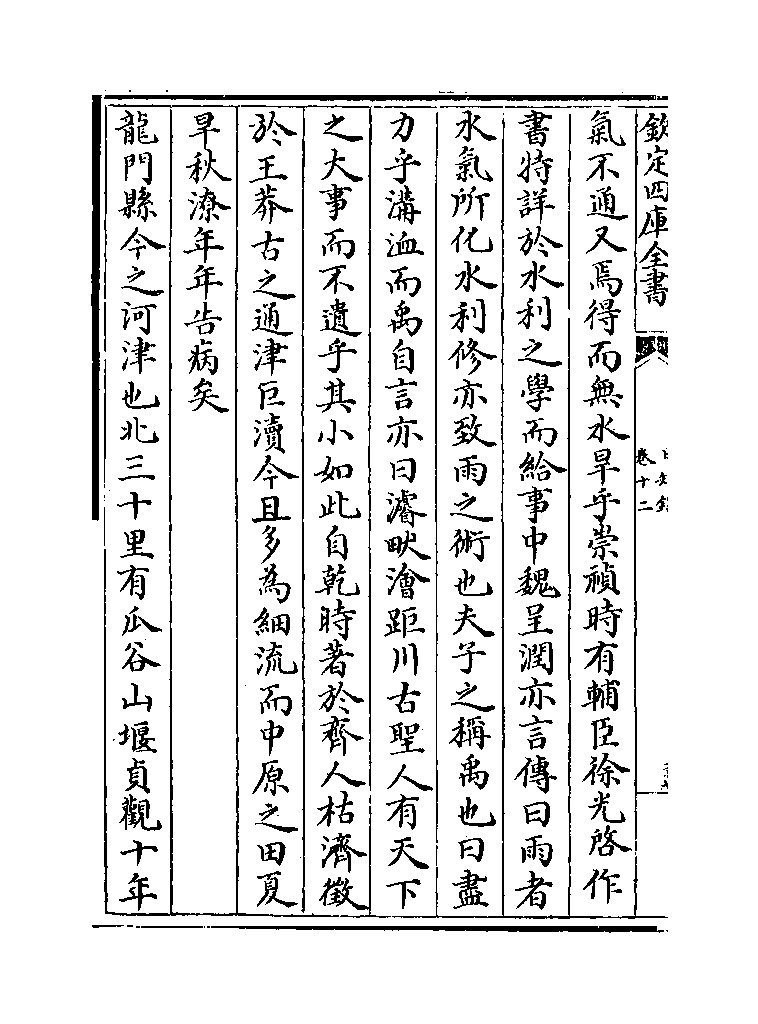 欽定四庫全書
卷十二
氣不通又焉得而無水旱乎崇禎時有輔臣徐光啓作
書特詳於水利之學而給事中魏呈潤亦言傳曰雨者
水氣所化水利修亦致雨之術也夫子之稱禹也曰盡
力乎溝洫而禹自言亦曰濬畎澮距川古聖人有天下
之大事而不遺乎其小如此自乾時著於齊人枯濟徵
於王莽古之通津巨瀆今且多為細流而中原之田夏
旱秋潦年年告病矣
龍門縣今之河津也北三十里有瓜谷山堰貞觀十年